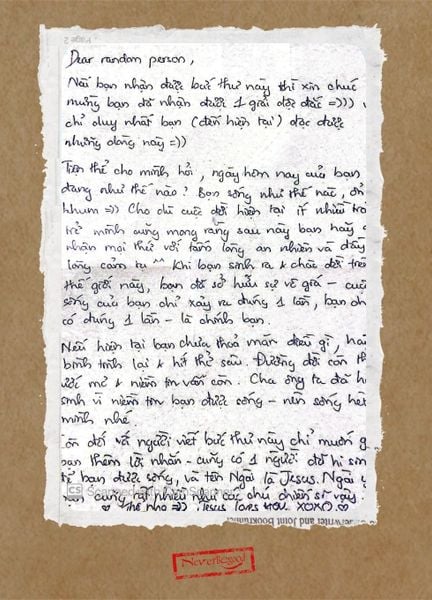 Page 2
Dear random person,
Nếu bạn nhận được bức thư này thì xin chúc
mừng bạn đã nhận được 1 giải độc đắc =)))
chỉ duy nhất bạn (đến hiện tại) đọc được
những dòng này =))
Tiện thể cho mình hỏi, ngày hôm nay của bạn
đang như thế nào? Bạn sống như thế nào, ổn
khum =)) Cho dù cuộc đời hiện tại ít nhiều
trẻ mình cũng mong rằng sau này bạn hãy
nhận mọi thứ với tấm lòng an nhiên và đầy
lòng cảm tạ ^^ Khi bạn sinh ra & chào đời trên
thế giới này, bạn đã sở hữu sự vô giá -
sống của bạn chỉ xảy ra đúng 1 lần, bạn
có đúng 1 lần - là chính bạn.
Nếu hiện tại bạn chưa thoả mãn điều gì,
bình tĩnh lại & hít thở sâu. Đường đời còn
ước mơ & niềm tin vẫn còn. Cha ông ta đã hi
sinh vì niềm tin bạn được sống - nên sống hết
mình nhé
Còn đối với người viết bức thư này chỉ muốn
bạn thêm lời nhắn - cũng có 1 người đã hi sinh
để bạn được sống, và tên Ngài là Jesus. Ngài
bạn cũng rất nhiều như các chú chiến sĩ vậy.
Thế nha =)) Jesus loves you XOXO
CS
erwriter and Joint Bookrunner